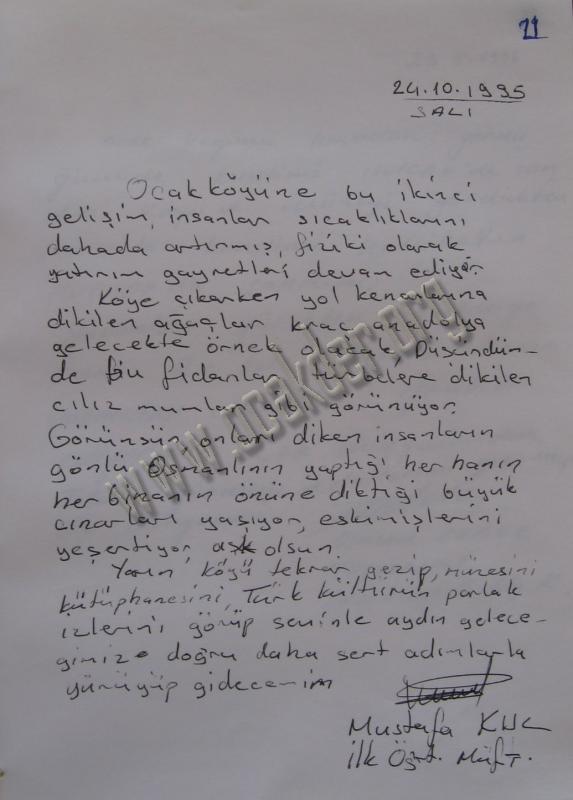 21
24.10.1995
SALI
Ocak köyüne bu ikinci
gelişim, insanlar sıcaklıklarını
dahada artırmış, fiziki olarak
yatırım gayretleri devam ediyor.
Köye çıkarken yol kenarlarına
dikilen ağaçlar kıraç anadolya
gelecekte örnek olacak Düşündün-
de Bu fidanlar türbelere dikilen
cılız mumlar gibi görünüyor.
Görünsün, onları diken insanların
gönlü Osmanlının yaptığı her hanın
her binanın önüne diktiği büyük
çınarları yaşıyor, eskimişlerini
yeşertiyor, aşk olsun.
Yarın köyü tekrar gezip, müzesini
kütüphanesini, Türk kültürün parlak
izlerini görüp seninle aydın gelece-
ğimize doğru daha sert adımlarla
yürüyüp gidecem
Mustafa
İlk Öğrt. Müft.
www.ocakder.org